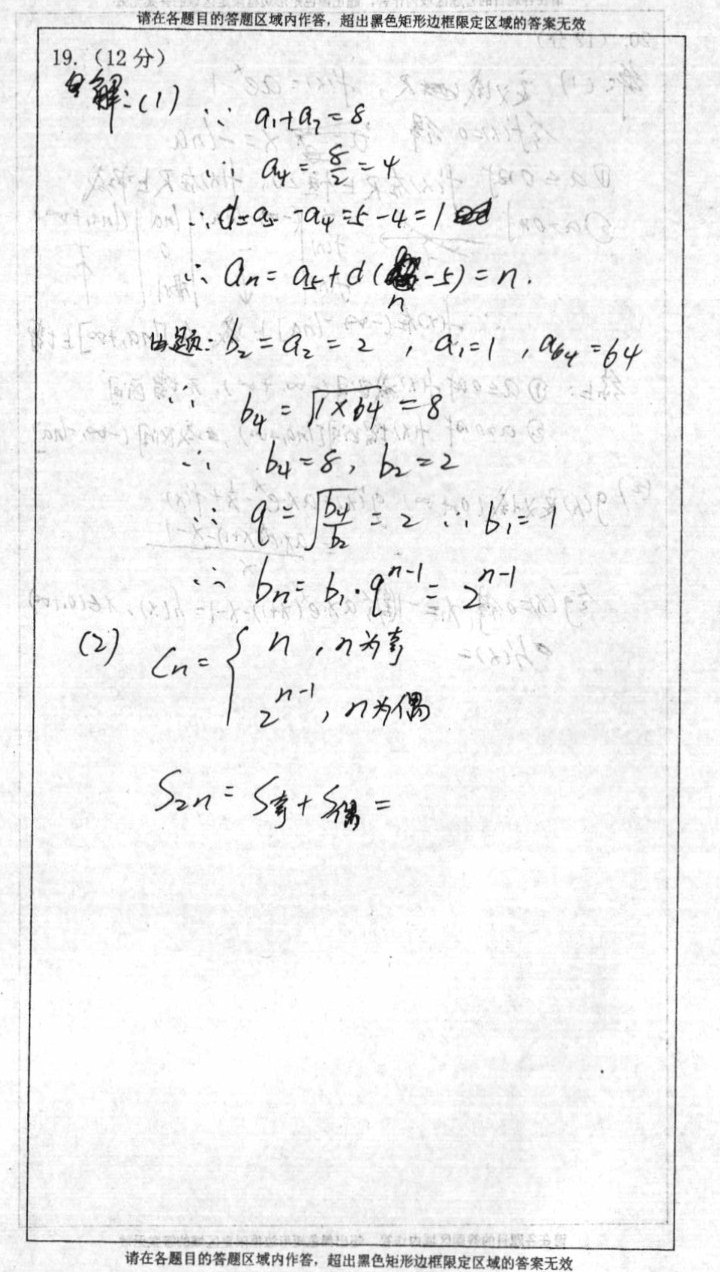 请在各题目的答题区域内作答，超出黑色矩形边框限定区域的答案无效
19.（12分）
解:(1) ∵ a₁+a₇=8
∴ a₄=8/2=4
∴d=a₅-a₄=5-4=1
∴ aₙ=a₅+d(n-5)=n.
由题: b₂=a₂=2 , a₁=1 , a₆₄=64
∴ b₄=√(1×64)=8
∵ b₄=8, b₂=2
∴ q=√(b₄/b₂)=2 ∴b₁=1
∴ bₙ=b₁·qⁿ⁻¹=2ⁿ⁻¹
(2) Cₙ={ n , n为奇
2ⁿ⁻¹, n为偶
S₂ₙ=S奇+S偶=
请在各题目的答题区域内作答，超出黑色矩形边框限定区域的答案无效